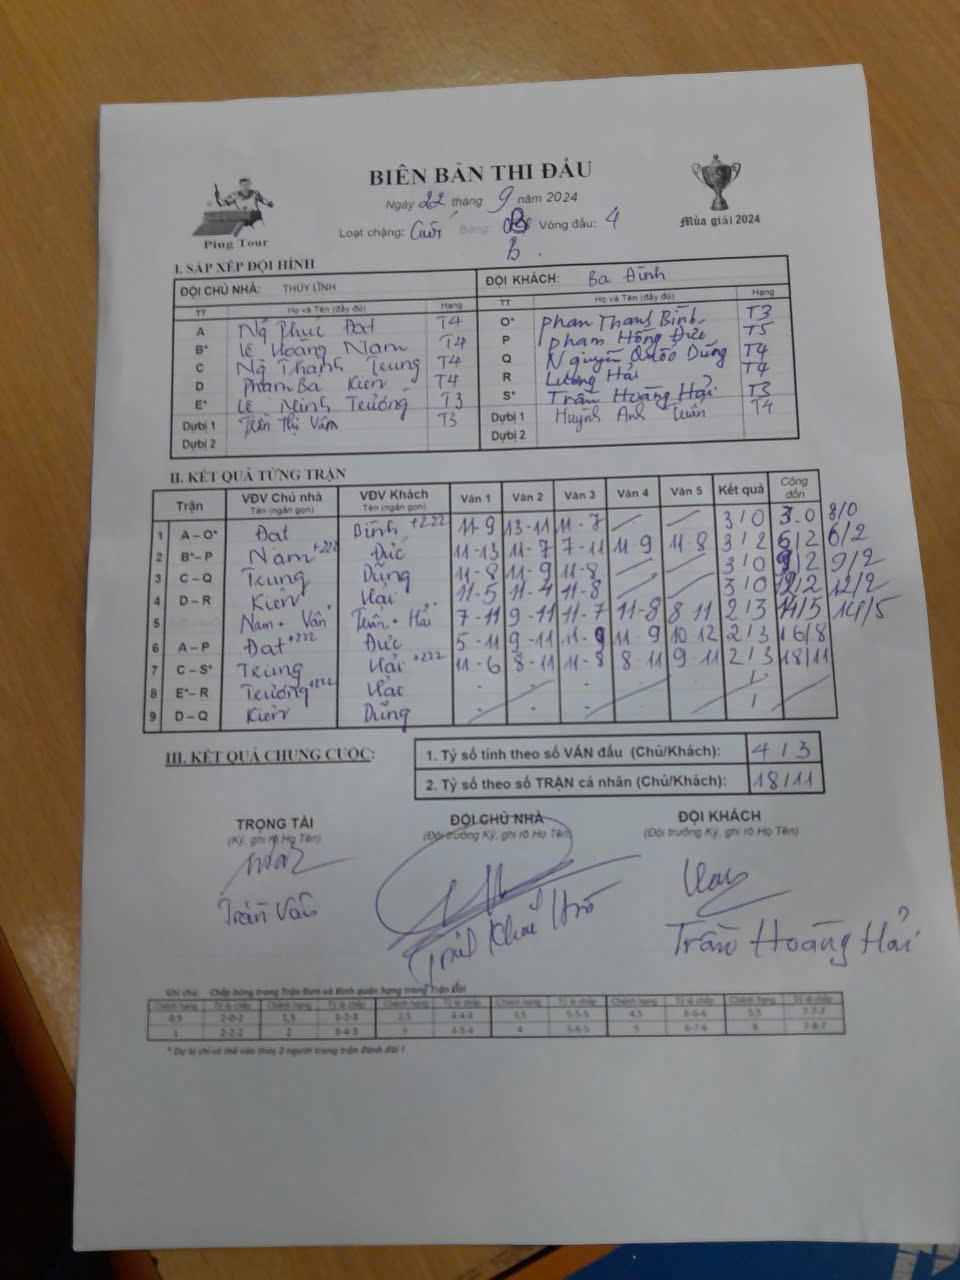 BIÊN BẢN THI ĐẤU
Ngày 22 tháng 9 năm 2024
Ping Tour
Mùa giải 2024
Loạt chặng: Cuối Bảng: B Vòng đấu: 4
B.
I. SẮP XẾP ĐỘI HÌNH
ĐỘI CHỦ NHÀ: THÚY LĨNH ĐỘI KHÁCH: Ba Đình
TT Họ và Tên (đầy đủ) Hạng TT Họ và Tên (đầy đủ) Hạng
A Ng Phúc Đạt T4 O* Phan Thanh Bình T3
B* Lê Hoàng Nam T4 P Phạm Hồng Đức T5
C Ng Thanh Trung T4 Q Nguyễn Quốc Dũng T4
D Phạm Bá Kiên T4 R Lương Hải T4
E* Lê Minh Trường T3 S* Trần Hoàng Hải T3
Dự bị 1 Trần Thị Vân T3 Dự bị 1 Huỳnh Anh Tuấn T4
Dự bị 2 Dự bị 2
II. KẾT QUẢ TỪNG TRẬN
Trận VĐV Chủ nhà Tên (ngắn gọn) VĐV Khách Tên (ngắn gọn) Ván 1 Ván 2 Ván 3 Ván 4 Ván 5 Kết quả Cộng dồn
1 A – O* Đạt Bình +222 11-9 13-11 11-7 3/0 3-0
2 B* – P Nam +222 Đức 11-13 11-7 7-11 11-9 11-8 3/2 6/2 6/2
3 C – Q Trung Dũng 11-8 11-9 11-8 3/0 9/2 9/2
4 D – R Kiên Hải 11-5 11-4 11-8 3/0 12/2 12/2
5 Nam - Vân Tuấn - Hải 7-11 9-11 11-7 11-8 8-11 2/3 14/5 14/5
6 A – P Đạt +222 Đức 5-11 9-11 11-9 11-9 10-12 2/3 16/8
7 C – S* Trung Hải +222 11-6 8-11 11-8 8-11 9-11 2/3 18/11
8 E* – R Trường +222 Hải
9 D – Q Kiên Dũng
III. KẾT QUẢ CHUNG CUỘC:
1. Tỷ số tính theo số VÁN đấu (Chủ/Khách): 4/3
2. Tỷ số theo số TRẬN cá nhân (Chủ/Khách): 18/11
TRỌNG TÀI ĐỘI CHỦ NHÀ ĐỘI KHÁCH
(Ký, ghi rõ Họ Tên) (Đội trưởng Ký, ghi rõ Họ Tên) (Đội trưởng Ký, ghi rõ Họ Tên)
Trần Vân
Trần Hoàng Hải
Ghi chú: Chấp bóng trong Trận Đơn và Bình quân hạng trong Trận đôi
Chênh hạng Tỷ lệ chấp Chênh hạng Tỷ lệ chấp Chênh hạng Tỷ lệ chấp Chênh hạng Tỷ lệ chấp Chênh hạng Tỷ lệ chấp Chênh hạng Tỷ lệ chấp
0,5 2-0-2 1,5 3-2-3 2,5 4-4-4 3,5 5-5-5 4,5 6-6-6 5,5 7-7-7
1 2-2-2 2 3-4-3 3 4-5-4 4 5-6-5 5 6-7-6 6 7-8-7
* Dự bị chỉ có thể vào thay 2 người trong trận đánh đôi !